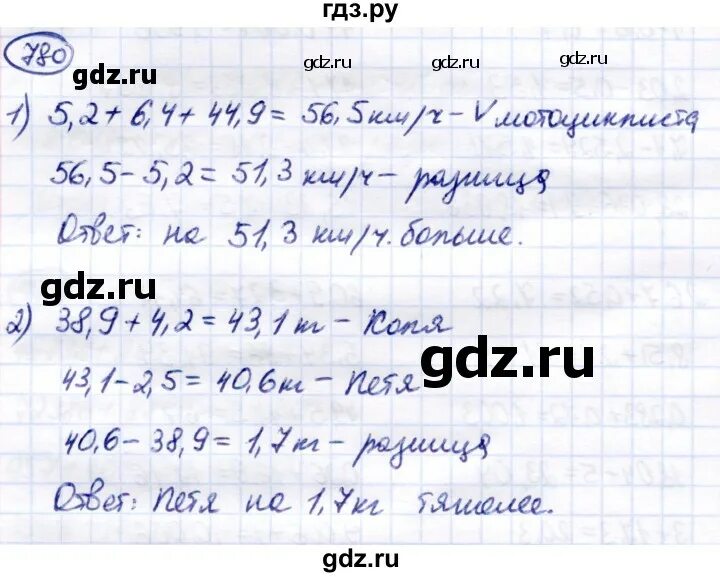 гдз.ру
780
gdz.ru
gdz.ru
gdz.ru
1) 5,2 + 6,4 + 44,9 = 56,5 км/ч – V мотоциклиста
56,5 – 5,2 = 51,3 км/ч – разница
Ответ: на 51,3 км/ч. больше.
gdz.ru
gdz.ru
gdz.ru
2) 38,9 + 4,2 = 43,1 кг – Коля
gdz.ru
43,1 – 2,5 = 40,6 кг – Петя
40,6 – 38,9 = 1,7 кг – разница
Ответ: Петя на 1,7 кг тяжелее.
gdz.ru
gdz.ru
gdz.ru